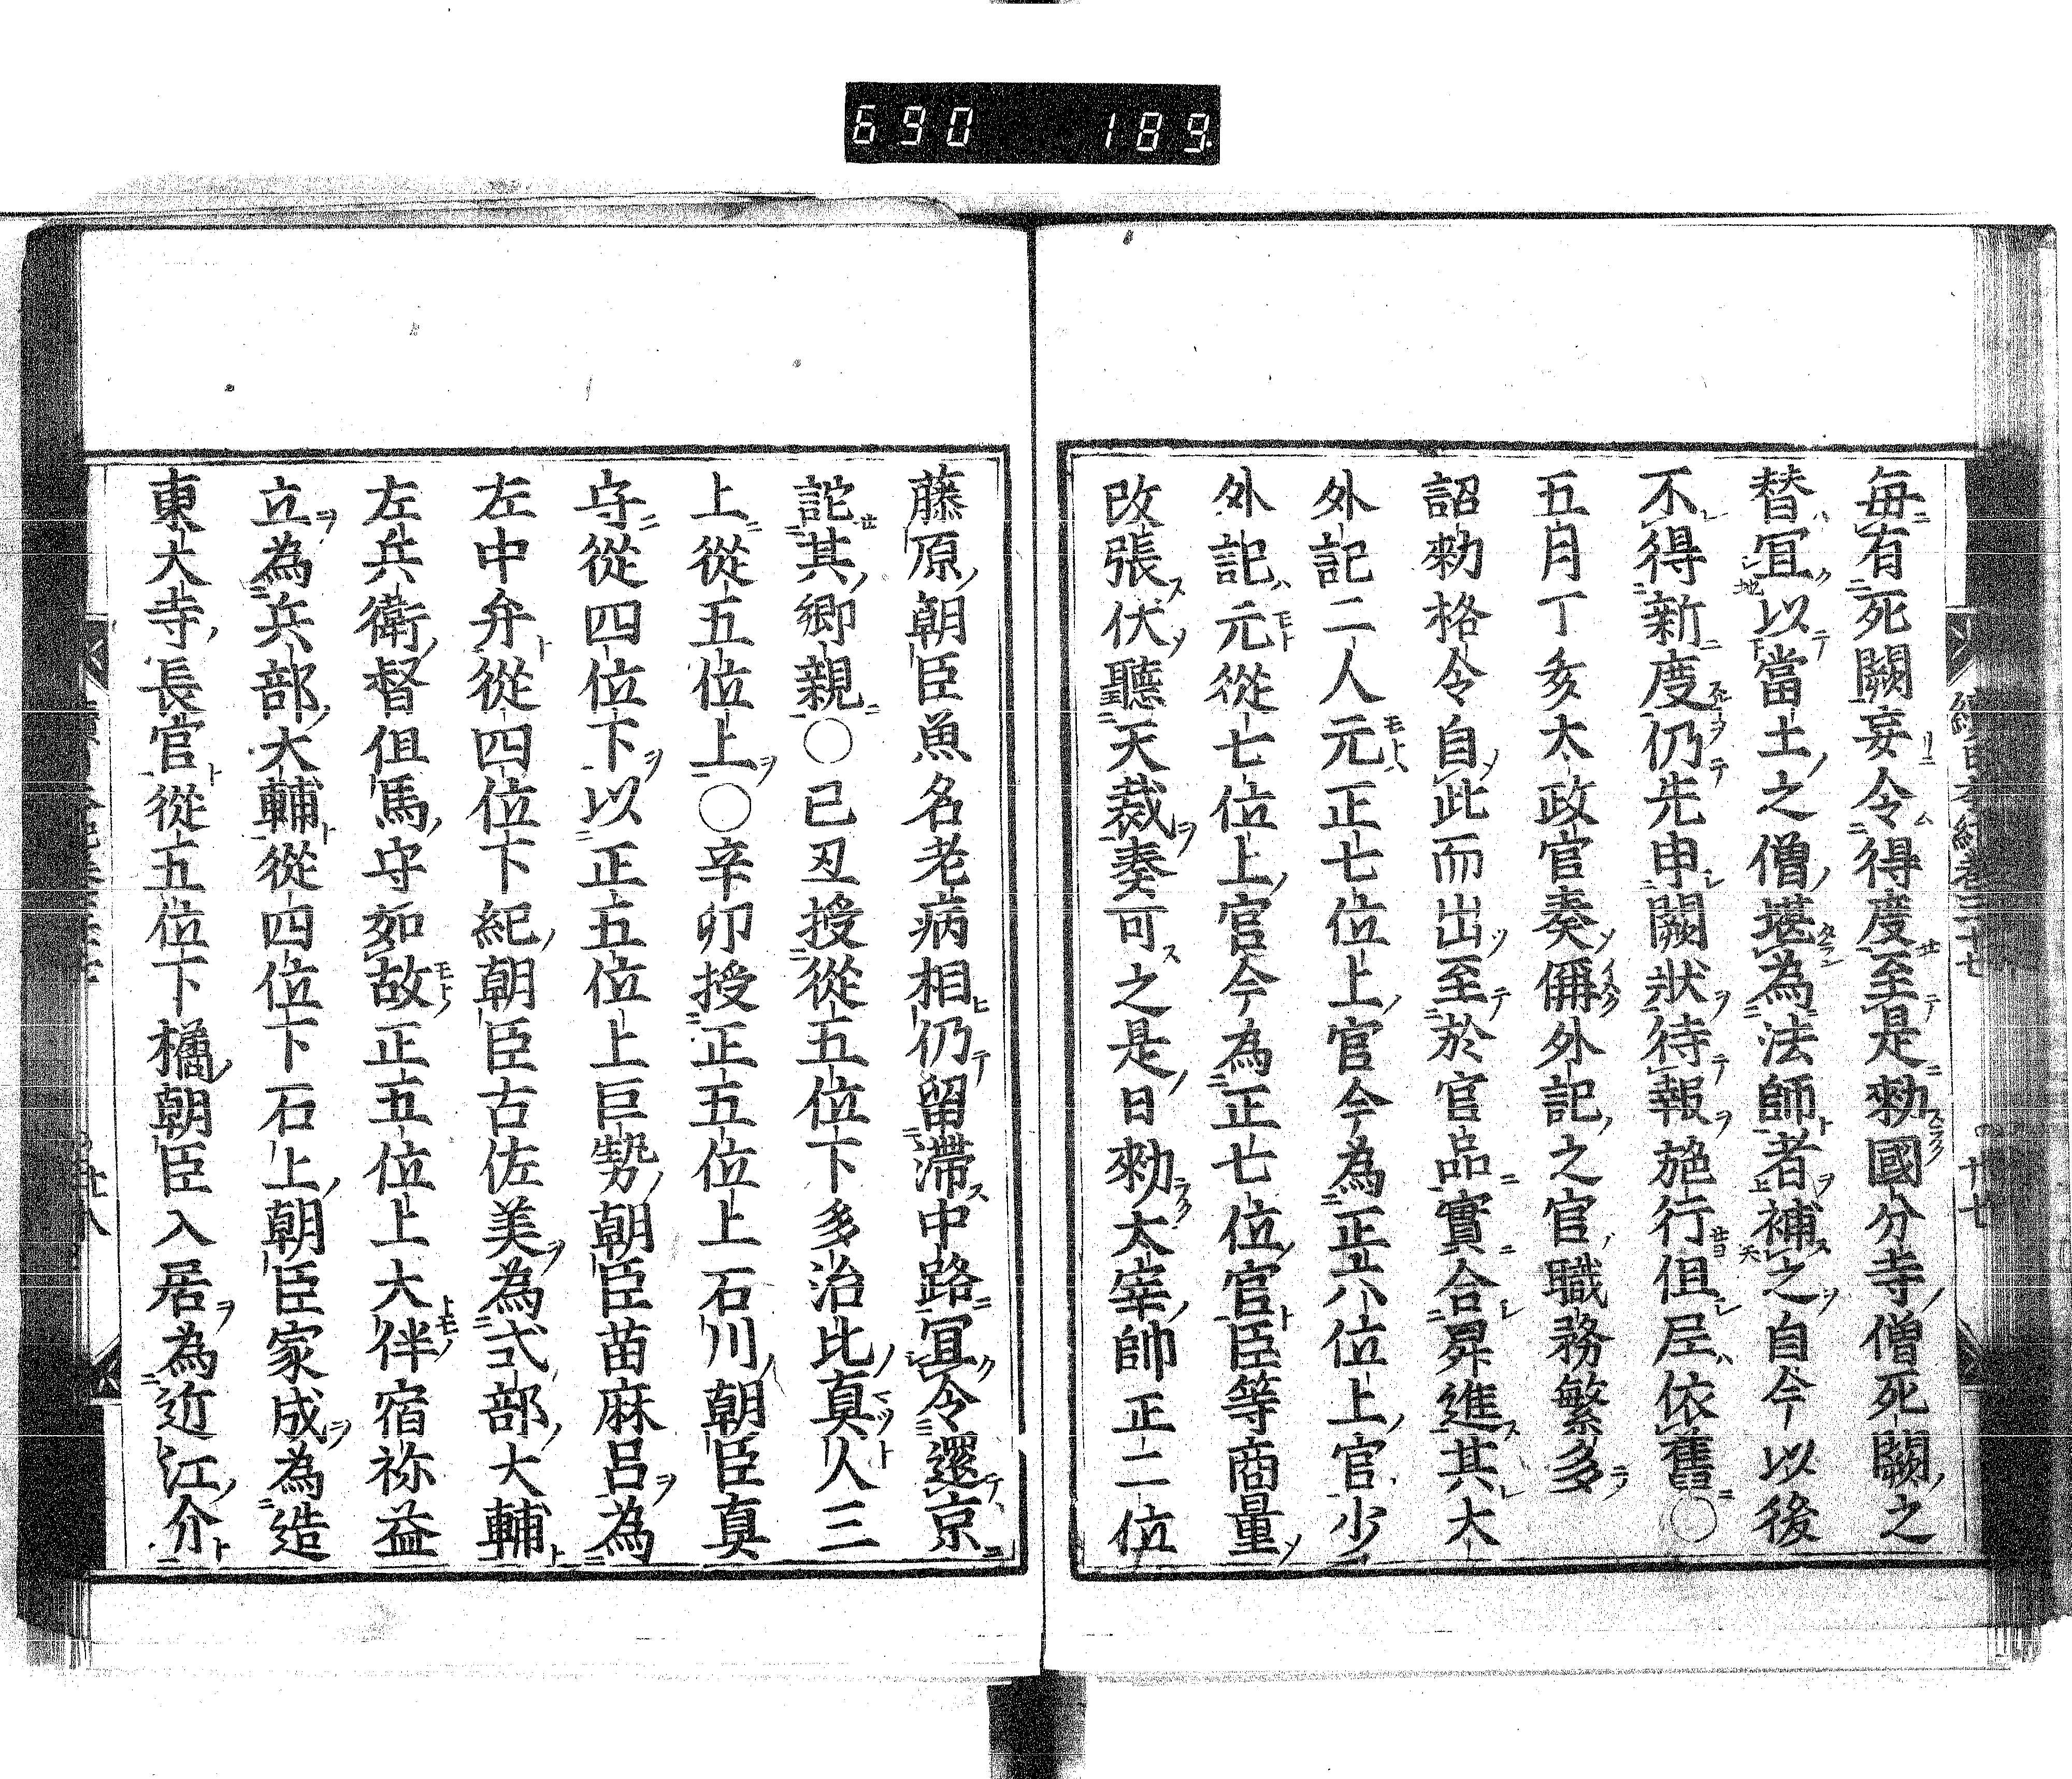 690 189
每有死闕妄令得度至是勅國分寺僧死闕之
替冝以當土之僧堪為法師者補之自今以後
不得新度仍先申闕狀待報施行但𡰱依舊○
五月丁亥太政官奏偁外記之官職務繁多
詔勅格令自此而出至於官品實合昇進其大
外記二人元正七位上官今為正六位上官少
外記元從七位上官今為正七位官臣等商量
改張伏聽天裁奏可之是日勅太宰帥正二位
藤原朝臣魚名老病相仍留滯中路冝令還京
託其鄉親○己丑授從五位下多治比真人三
上從五位上○辛卯授正五位上石川朝臣真
守從四位下以正五位上巨勢朝臣苗麻呂為
左中弁從四位下紀朝臣古佐美為式部大輔
左兵衛督但馬守如故正五位上大伴宿祢益
立為兵部大輔從四位下石上朝臣家成為造
東大寺長官從五位下橘朝臣入居為近江介